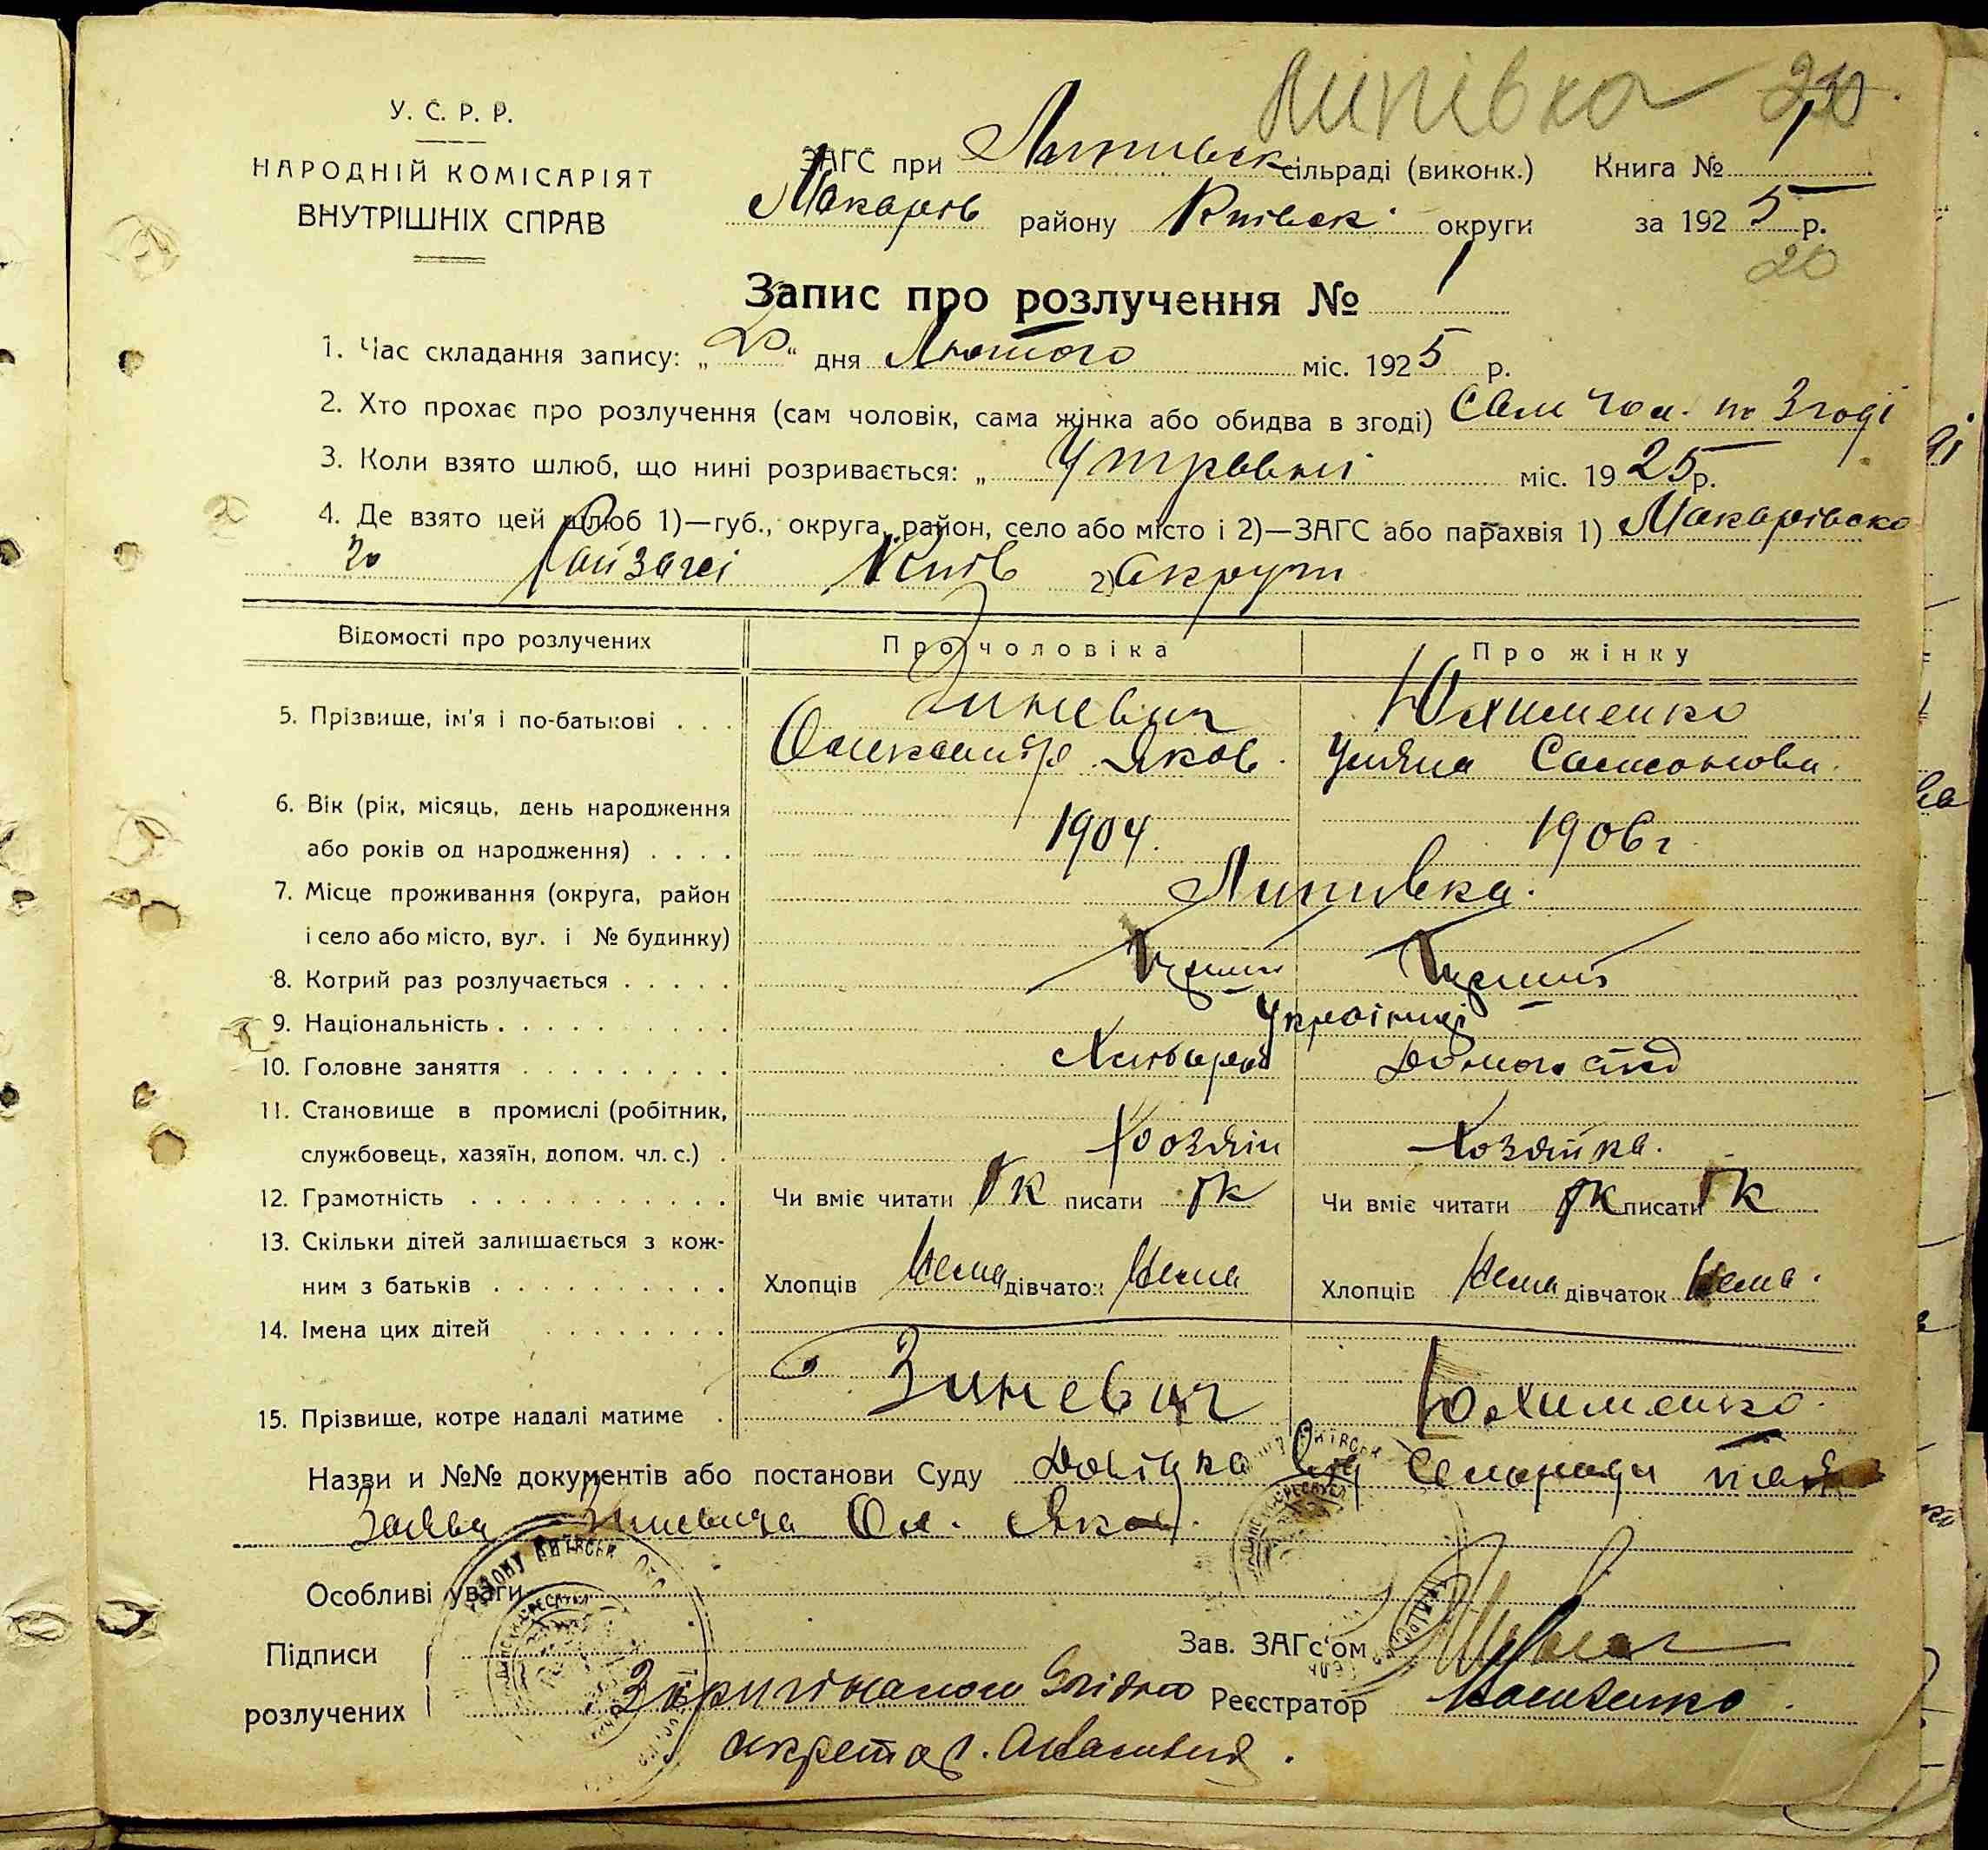 Липівка 20
У. С. Р. Р.
НАРОДНІЙ КОМІСАРІЯТ
ВНУТРІШНІХ СПРАВ
ЗАГС при Липивск сільраді (виконк.) Книга № 1
Макарів району Київськ. округи за 1925 р.
20
Запис про розлучення № 1
1. Час складання запису: „ “ дня Лютого міс. 1925 р.
2. Хто прохає про розлучення (сам чоловік, сама жінка або обидва в згоді) Сам чол. по Згоді
3. Коли взято шлюб, що нині розривається: „ У травні міс. 1925 р.
4. Де взято цей шлюб 1)—губ., округа, район, село або місто і 2)—ЗАГС або парахвія 1) Макарівсько
го Райзагсі Київ 2) Округи
Відомості про розлучених Про чоловіка Про жінку
5. Прізвище, ім'я і по-батькові . . . Зиневич Юхименко
Олександр Яков. Уляна Самсонова.
6. Вік (рік, місяць, день народження
або років од народження) . . . . 1904. 1906 г.
7. Місце проживання (округа, район Липивка.
і село або місто, вул. і № будинку)
8. Котрий раз розлучається . . . . . Перший Перший
9. Національність . . . . . . . . . . Українці
10. Головне заняття . . . . . . . . . Хлібороб
11. Становище в промислі (робітник,
службовець, хазяїн, допом. чл. с.) . Хозяїн Хозяйка.
12. Грамотність . . . . . . . . . . . Чи вміє читати писати Чи вміє читати писати
13. Скільки дітей залишається з кож-
ним з батьків . . . . . . . . . . Хлопців Нема дівчаток Нема Хлопців Нема дівчаток Нема.
14. Імена цих дітей . . . . . . . .
15. Прізвище, котре надалі матиме . Зиневич Юхименко.
Назви и №№ документів або постанови Суду Довідка від Сельради та
Заява Зиневича Ол. Яков.
Особливі уваги
Підписи Зав. ЗАГс'ом
розлучених З оригіналом Згідно Реєстратор
секретар.